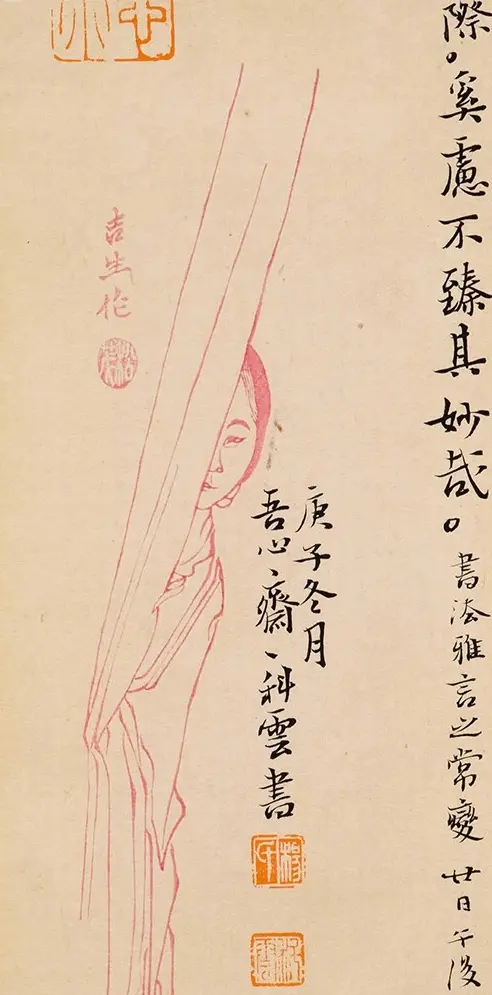 際。奚慮不臻其妙哉。
書法雅言之常變 廿日午後
庚子冬月
吾心齋科雲書
吉生作